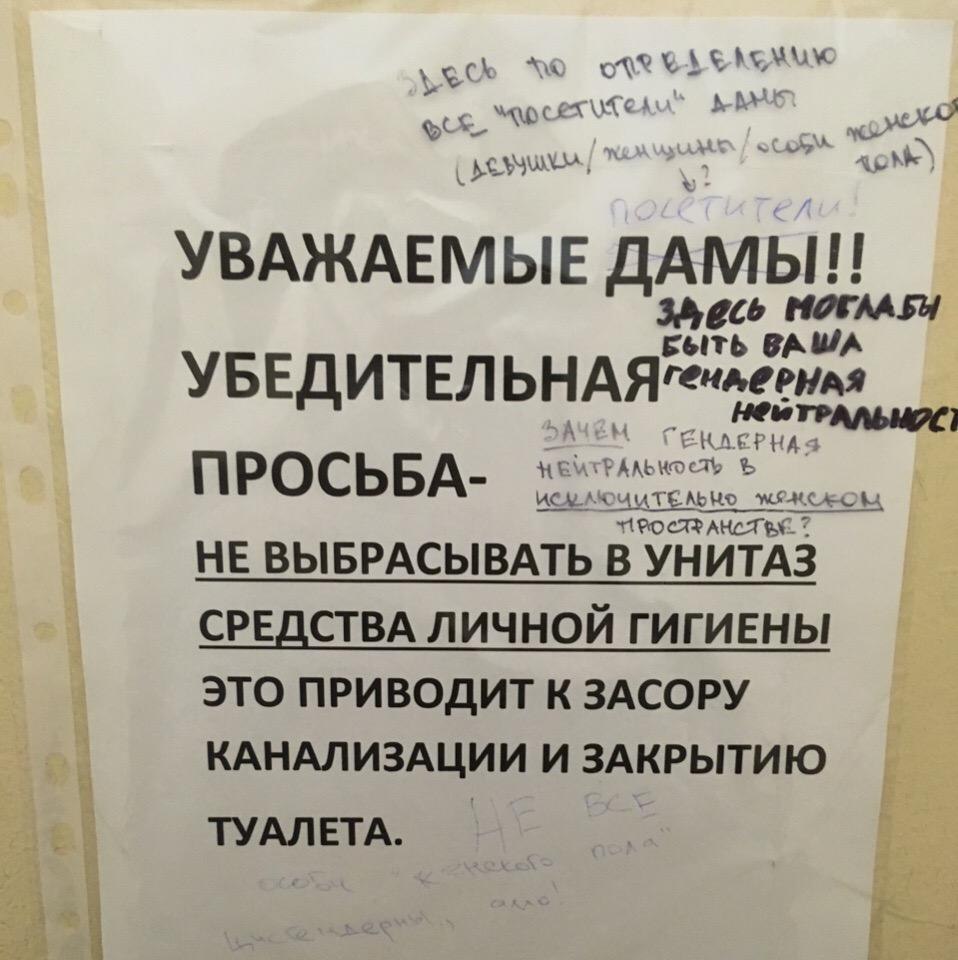 ЗДЕСЬ ПО ОПРЕДЕЛЕНИЮ
ВСЕ "ПОСЕТИТЕЛИ" ДАМЫ
(ДЕВУШКИ/женщины/особи женског
пола)
?
посетители!
УВАЖАЕМЫЕ ДАМЫ!!
ЗДЕСЬ МОГЛА БЫ
БЫТЬ ВАША
УБЕДИТЕЛЬНАЯ ГЕНДЕРНАЯ
НЕЙТРАЛЬНОСТ
ЗАЧЕМ ГЕНДЕРНАЯ
ПРОСЬБА- НЕЙТРАЛЬНОСТЬ В
ИСКЛЮЧИТЕЛЬНО ЖЕНСКОМ
ПРОСТРАНСТВЕ?
НЕ ВЫБРАСЫВАТЬ В УНИТАЗ
СРЕДСТВА ЛИЧНОЙ ГИГИЕНЫ
ЭТО ПРИВОДИТ К ЗАСОРУ
КАНАЛИЗАЦИИ И ЗАКРЫТИЮ
ТУАЛЕТА. НЕ ВСЕ
особи "женского пола"
цисгендерны, ало!